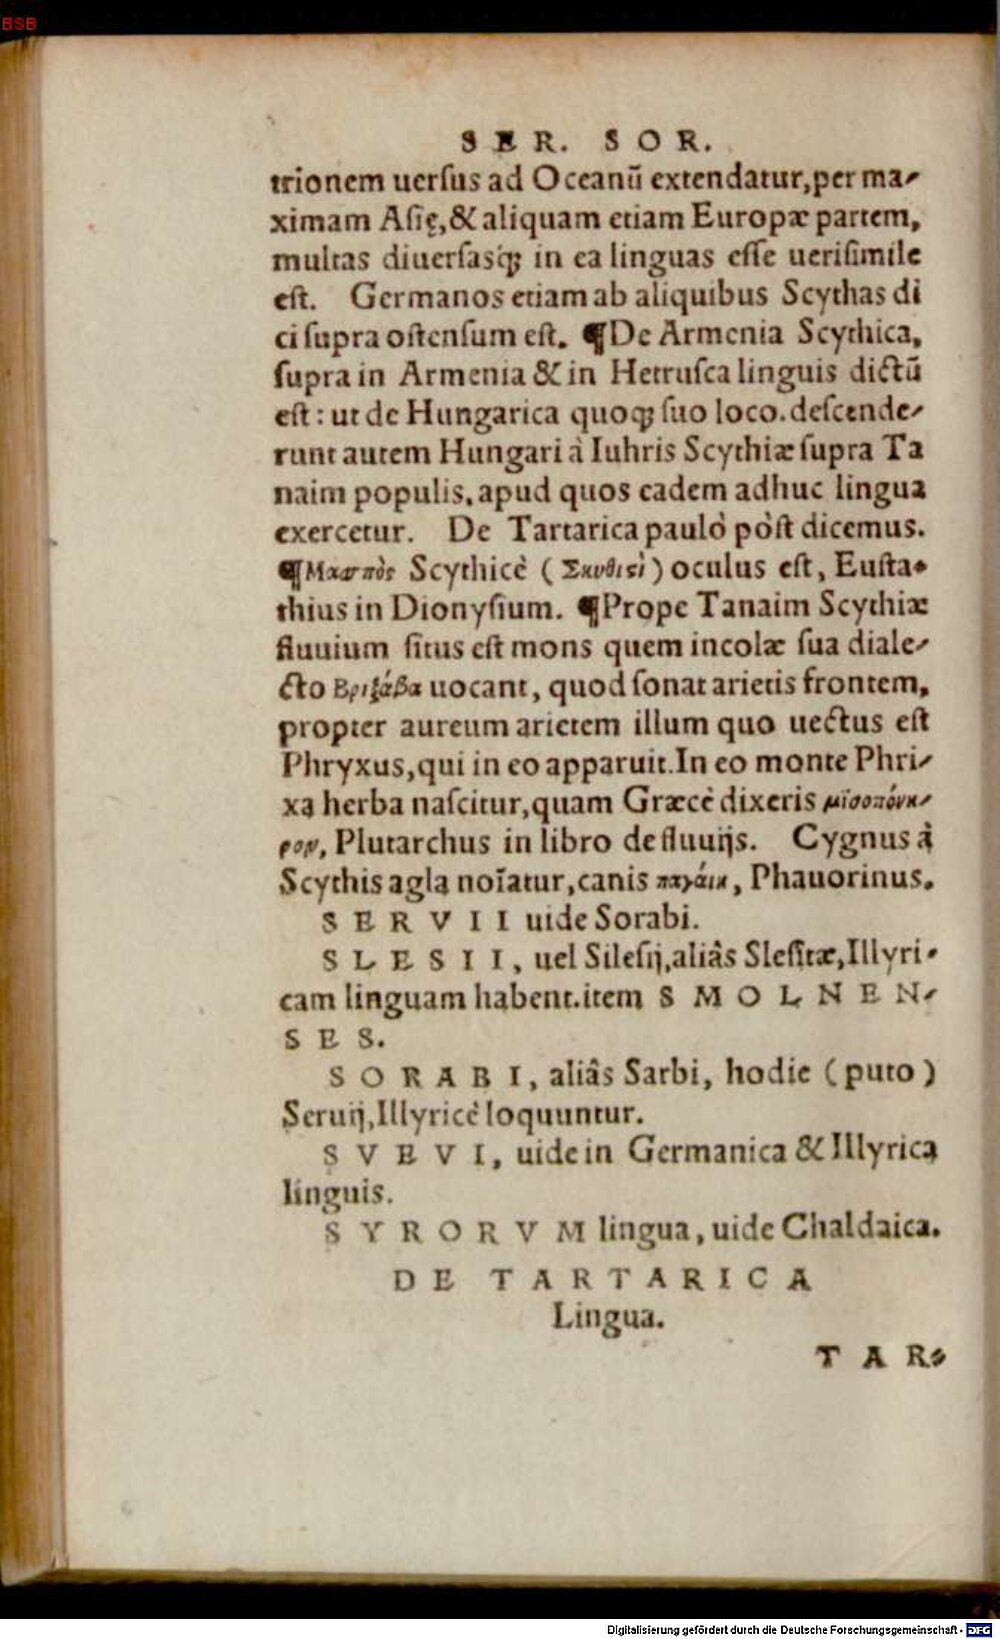 BSB
SER. SOR.
trionem uerſus ad Oceanũ extendatur,per ma-
ximam Aſię,& aliquam etiam Europæ partem,
multas diuerſasq́; in ea linguas eſſe ueriſimile
eſt. Germanos etiam ab aliquibus Scythas di
ci ſupra oſtenſum eſt. ¶De Armenia Scythica,
ſupra in Armenia & in Hetruſca linguis dictũ
eſt: ut de Hungarica quoq; ſuo loco. deſcende-
runt autem Hungari à Iuhris Scythiæ ſupra Ta
naim populis, apud quos eadem adhuc lingua
exercetur. De Tartarica paulò pòſt dicemus.
¶Μασπὸς Scythicè (Σκυθιστὶ) oculus eſt, Euſta-
thius in Dionyſium. ¶Prope Tanaim Scythiæ
fluuium ſitus eſt mons quem incolæ ſua diale-
cto Βριξάβα uocant, quod ſonat arietis frontem,
propter aureum arietem illum quo uectus eſt
Phryxus, qui in eo apparuit. In eo monte Phri-
xa herba naſcitur, quam Græcè dixeris μισοπόνη-
ρον, Plutarchus in libro de fluuijs. Cygnus à
Scythis agla noĩatur, canis παγάιη, Phauorinus.
SERVII uide Sorabi.
SLESII, uel Sileſij, aliâs Sleſitæ, Illyri-
cam linguam habent. item SMOLNEN-
SES.
SORABI, aliâs Sarbi, hodie (puto)
Seruij, Illyricè loquuntur.
SVEVI, uide in Germanica & Illyrica
linguis.
SYRORVM lingua, uide Chaldaica.
DE TARTARICA
Lingua.
TAR-
Digitalisierung gefördert durch die Deutsche Forschungsgemeinschaft - DFG